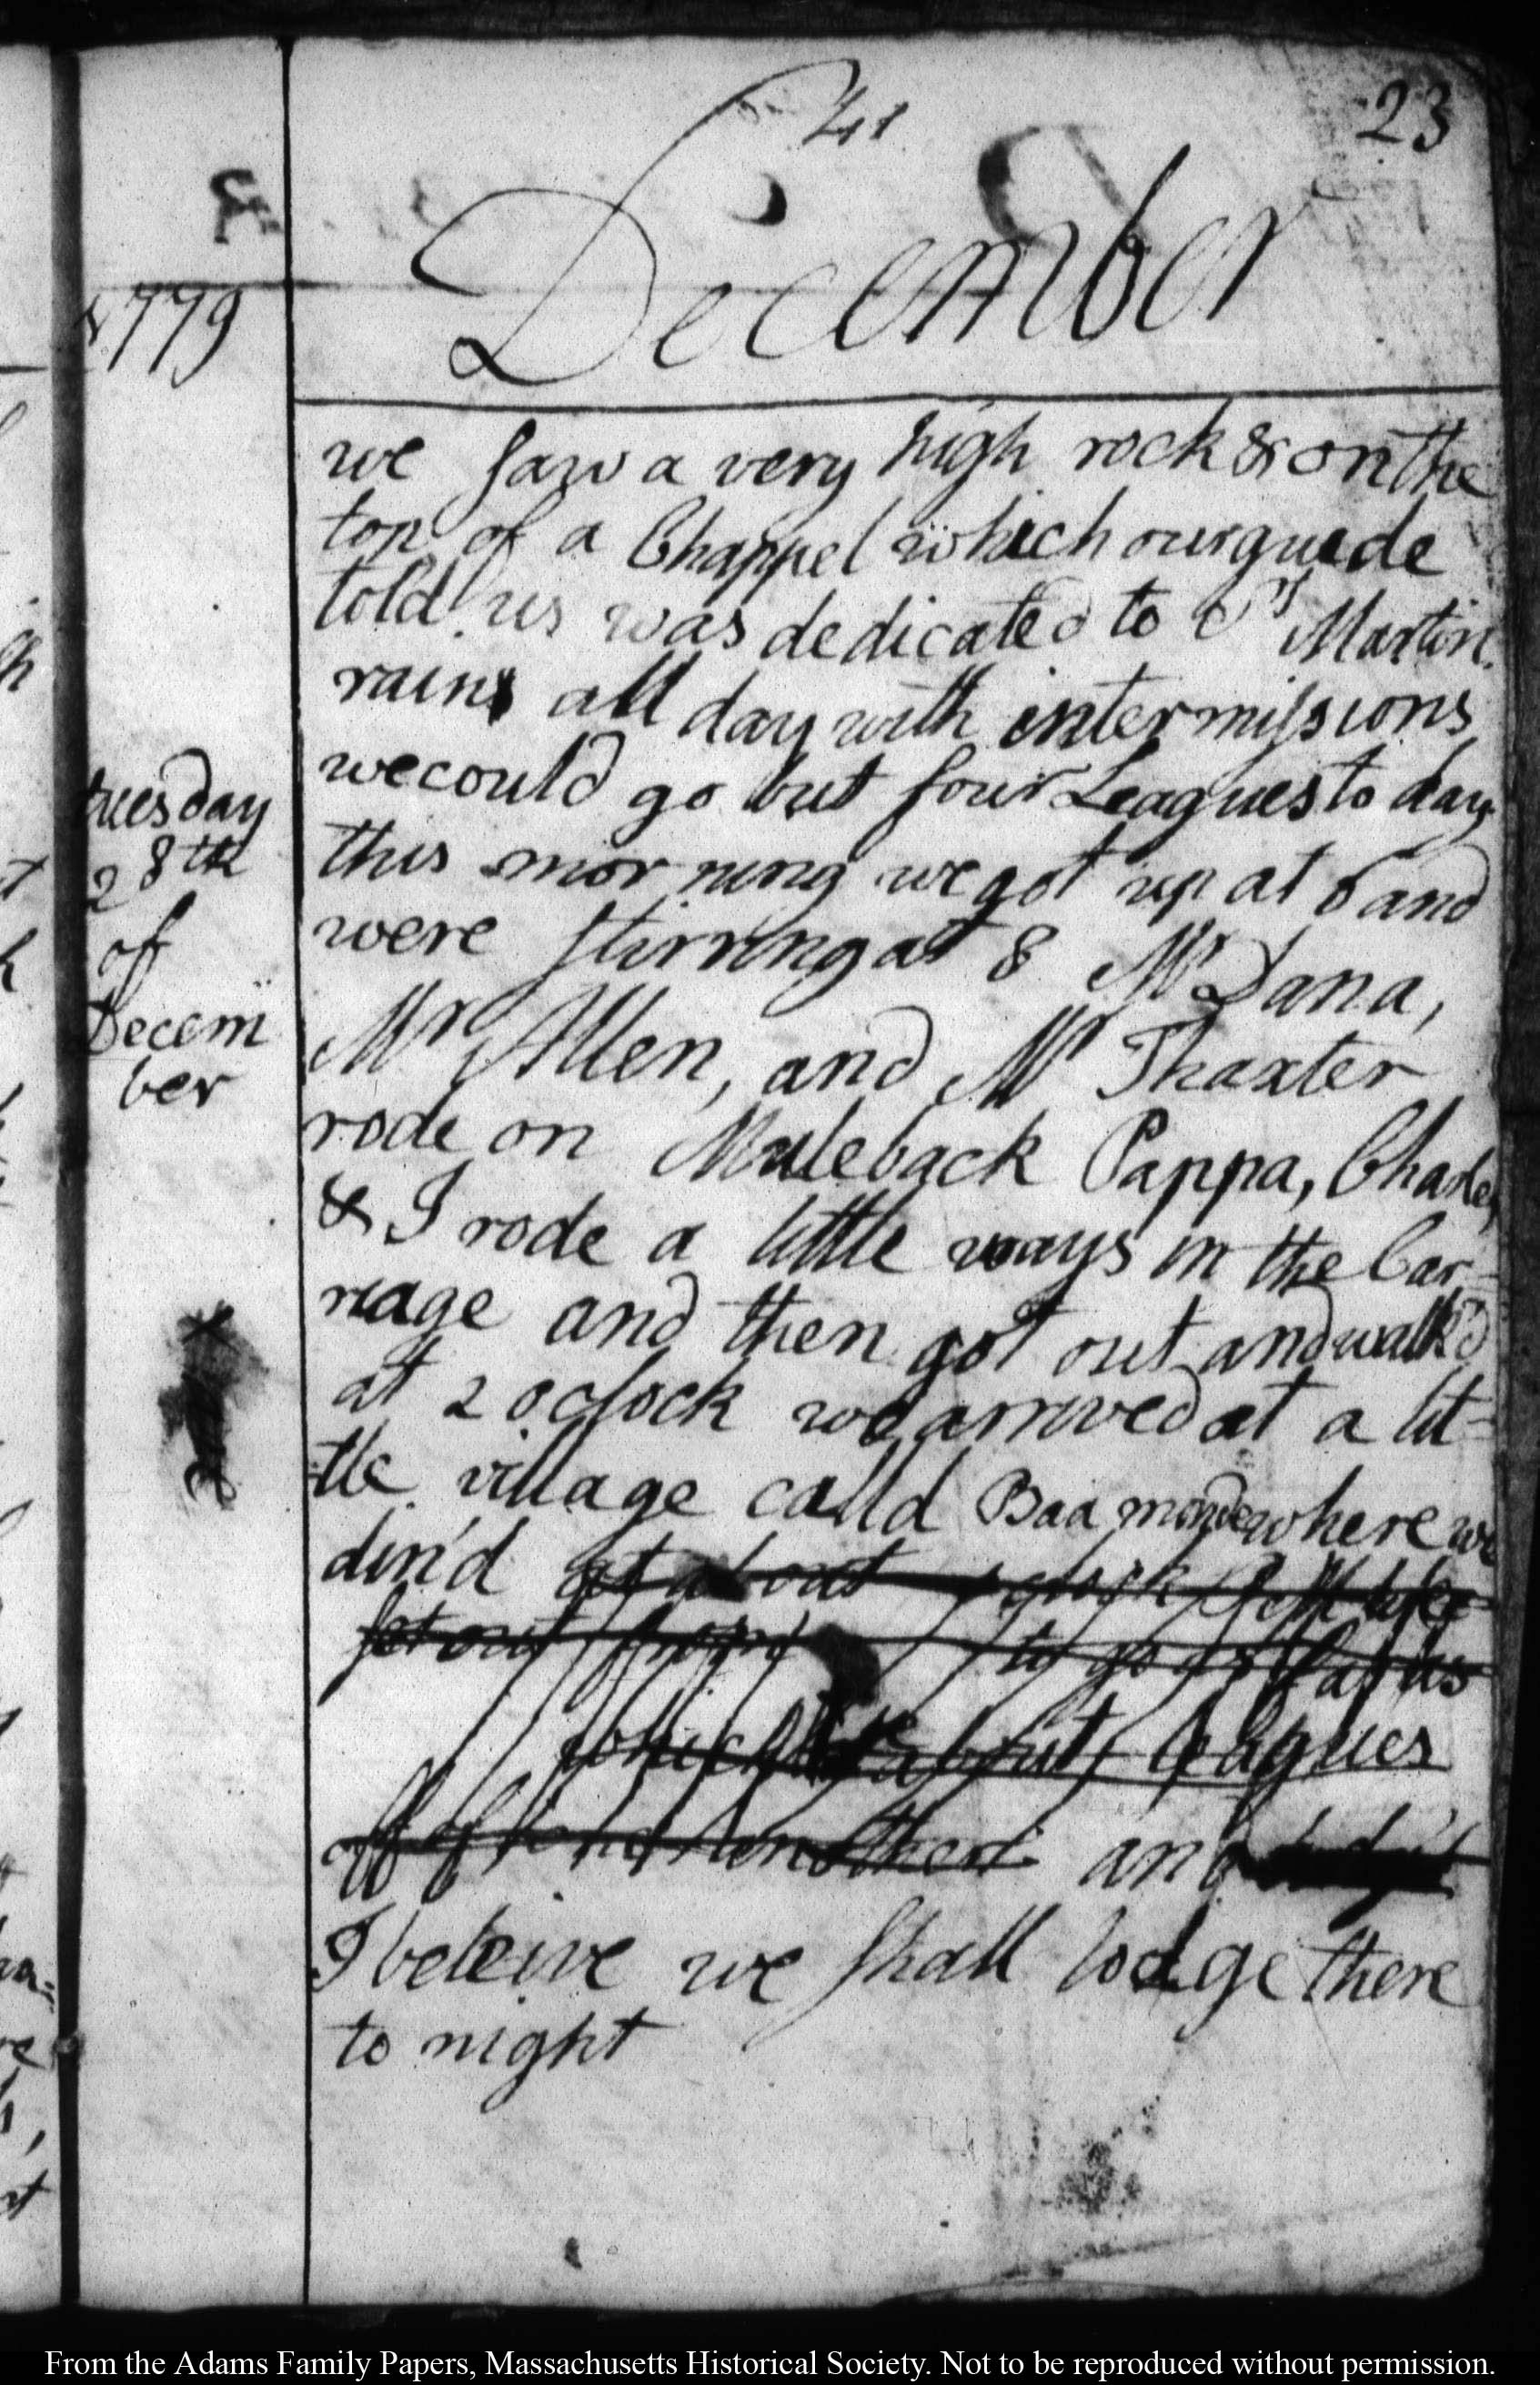 41
23
1779
December
we saw a very high rock & on the
top of a Chappel which our guide
told us was dedicated to St Martin.
rains all day with intermissions
we could go but four Leagues to day
tuesday
28th
of
Decem
ber
this morning we got up at 6 and
were stirring at 8 Mr Dana,
Mr Allen, and Mr Thaxter
rode on Muleback Pappa, Charles
& I rode a little ways in the Car=
riage and then got out and walk'd
at 2 oclock we arrived at a lit=
=tle village calld Baamonde where we
din'd at about oclock P M We
set out from to go as far as
which is about leagues
off and
I beleive we shall lodge there
to night
From the Adams Family Papers, Massachusetts Historical Society. Not to be reproduced without permission.